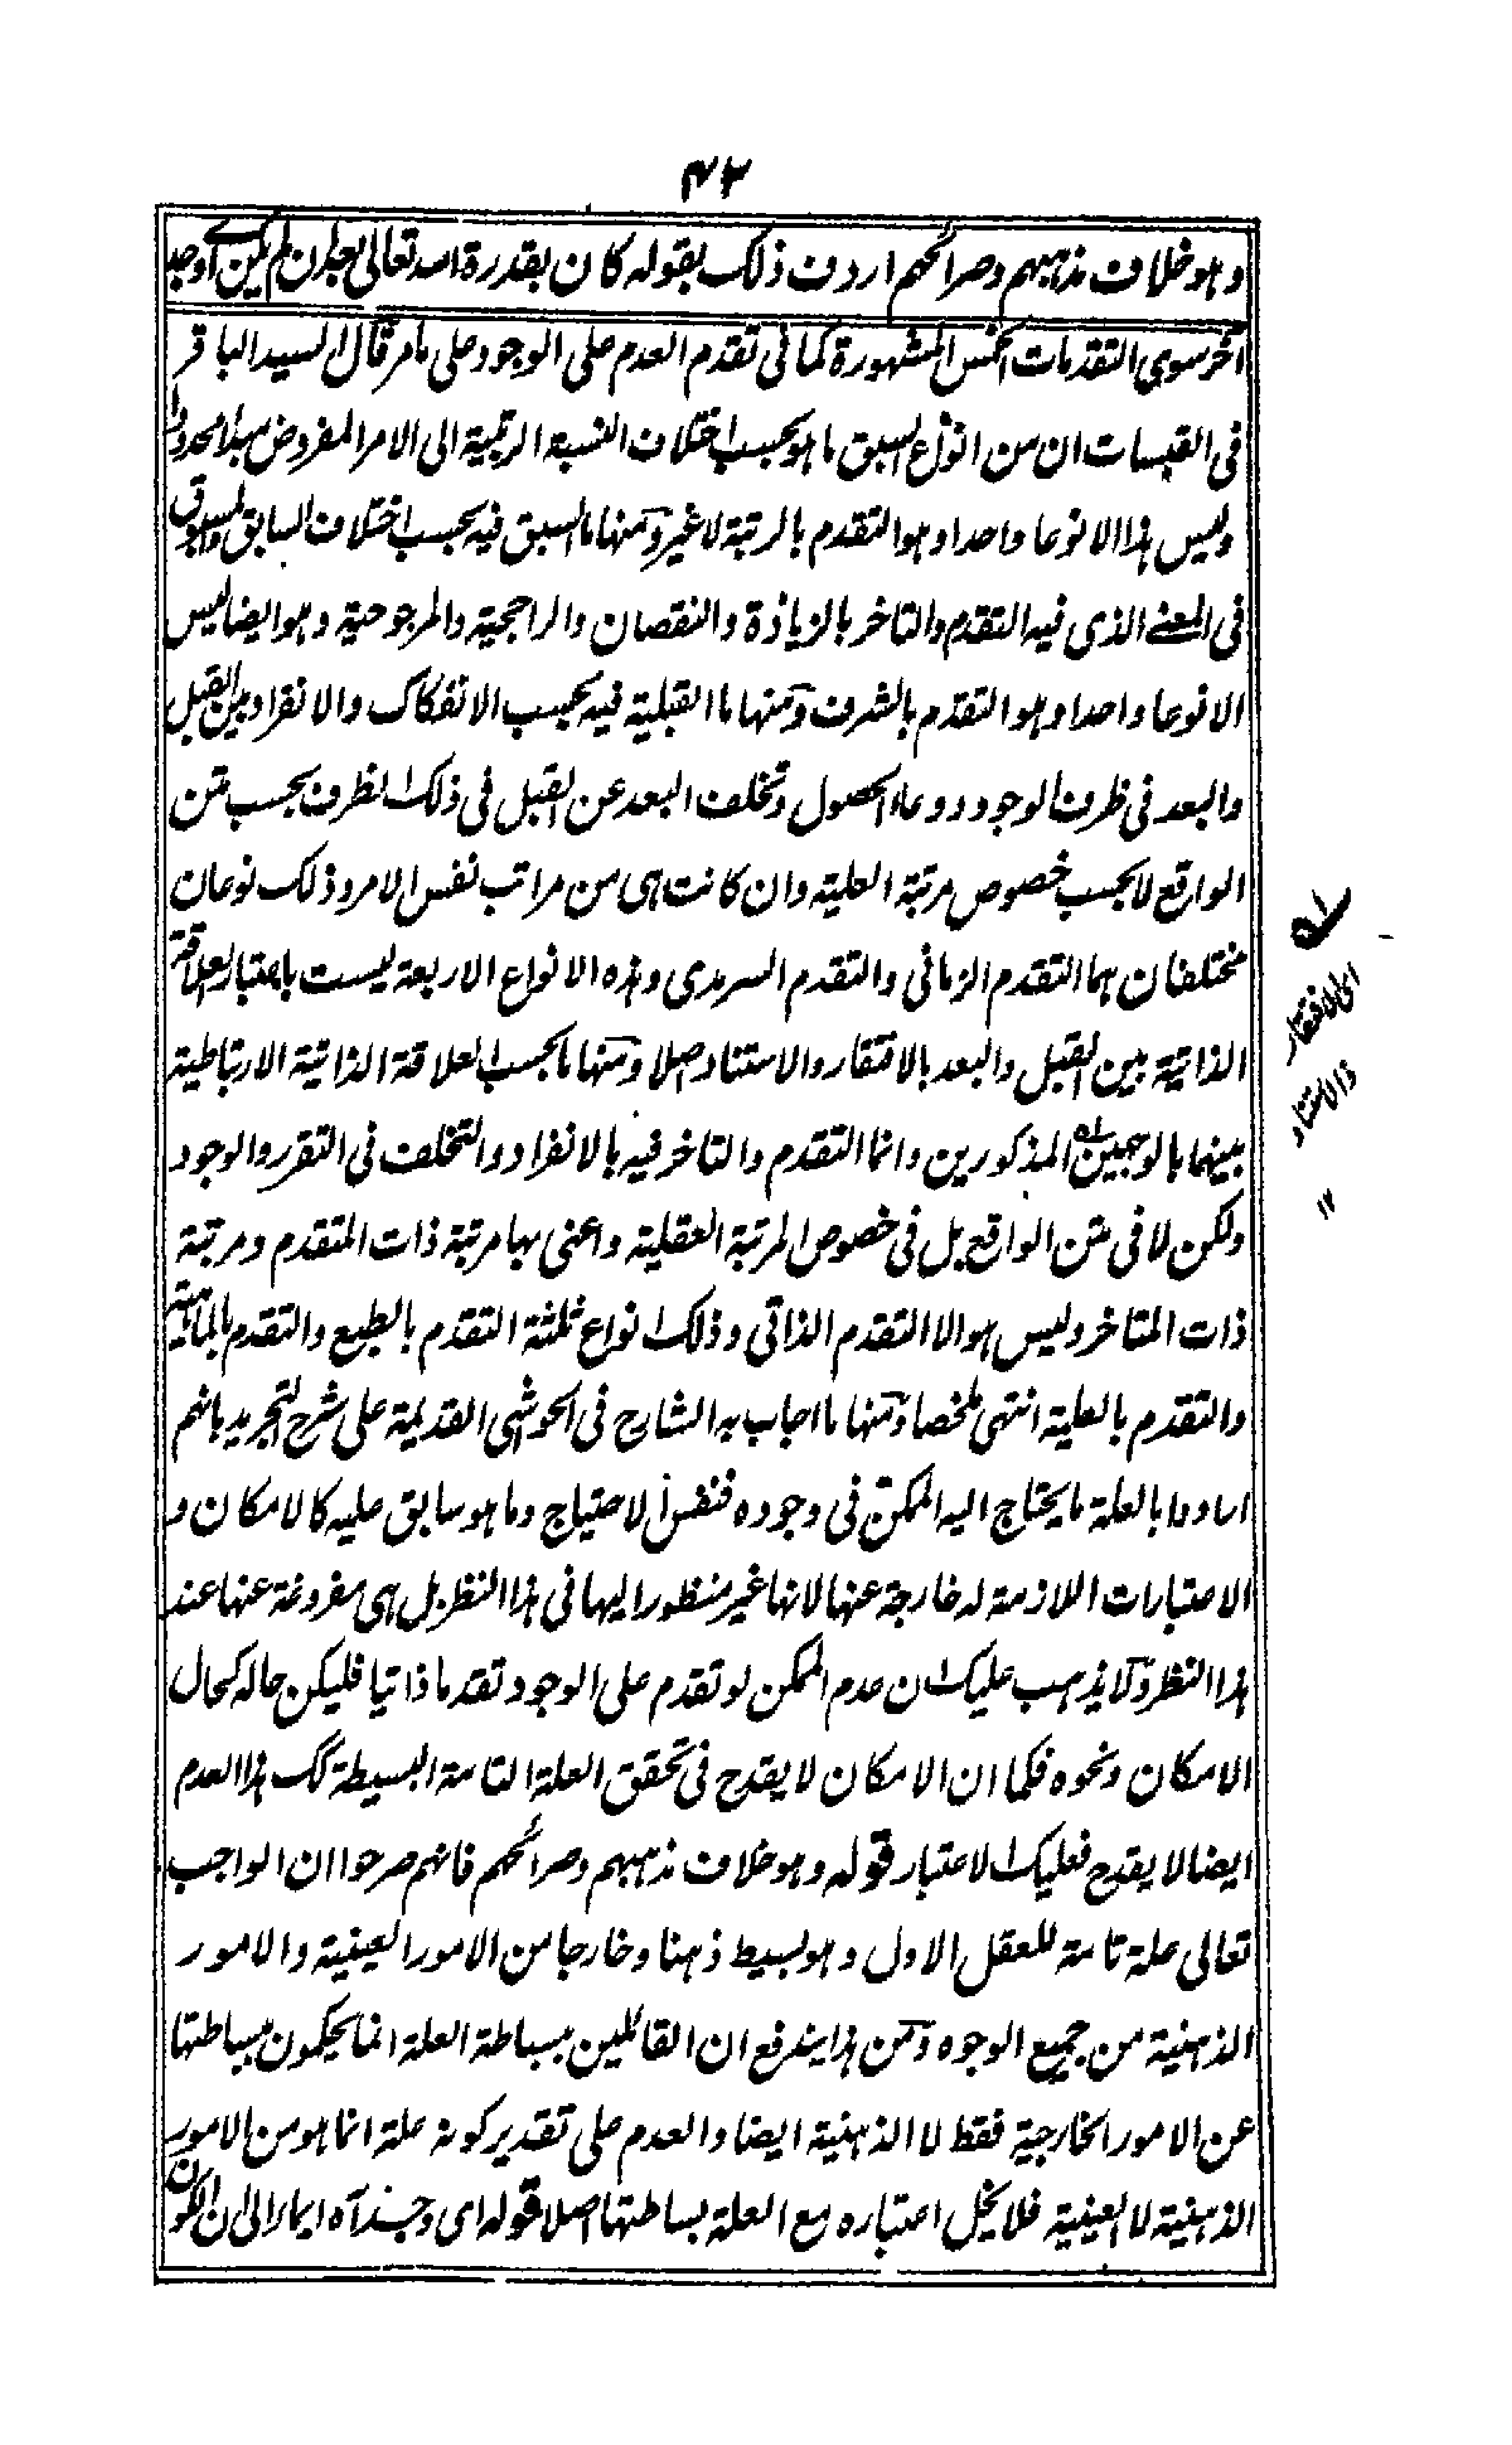 ٤٢
وهو خلاف مذهبهم وصرائحهم اردف ذلك بقوله كان بقدرة الله تعالى بعد ان لم يكن اے اوجد
آخر سوى التقدمات الخمس المشهورة كما فى تقدم العدم على الوجود على ما مر قال السيد الباقر
فى القبسات ان من انواع السبق ما هو بحسب اختلاف النسبة الرتبية الى الامر المفروض مبدأ محدودا
وليس هذا الا نوعا واحدا وهو التقدم بالرتبة لا غير ومنها ما السبق فيه بحسب اختلاف السابق والمسبوق
فى المعنے الذى فيه التقدم والتاخر بالزيادة والنقصان والراجحية والمرجوحية وهو ايضا ليس
الا نوعا واحدا وهو التقدم بالشرف ومنها ما القبلية فيه بحسب الانفكاك والانفراد بين القبل
والبعد فى ظرف الوجود ووعاء الحصول وتخلف البعد عن القبل فى ذلك الظرف بحسب متن
الواقع لا بحسب خصوص مرتبة العلية وان كانت هى من مراتب نفس الامر وذلك نوعان
مختلفان هما التقدم الزمانى والتقدم السرمدى وهذه الانواع الاربعة ليست باعتبار العلاقة
الذاتية بين القبل والبعد بالافتقار والاستناد اصلا ومنها ما بحسب العلاقة الذاتية الارتباطية
بينهما بالوجهين له المذكورين وانما التقدم والتاخر فيه بالانفراد والتخلف فى التقرر والوجود
ولكن لا فى متن الواقع بل فى خصوص المرتبة العقلية واعنى بها مرتبة ذات المتقدم ومرتبة
ذات المتاخر وليس هو الا التقدم الذاتى وذلك انواع ثلثة التقدم بالطبع والتقدم بالماهية
والتقدم بالعلية انتهى ملخصا ومنها ما اجاب به الشارح فى الحواشى القديمة على شرح التجريد بانهم
ارادوا بالعلة ما يحتاج اليه الممكن فى وجوده فنفس الاحتياج وما هو سابق عليه كالامكان و
الاعتبارات اللازمة له خارجة عنها لانها غير منظور اليها فى هذا النظر بل هى مفروغة عنها عند
هذا النظر ولا يذهب عليك ان عدم الممكن لو تقدم على الوجود تقدما ذاتيا فليكن حاله كحال
الامكان ونحوه فكما ان الامكان لا يقدح فى تحقق العلة التامة البسيطة كك هذا العدم
ايضا لا يقدح فعليك الاعتبار قوله وهو خلاف مذهبهم وصرائحهم فانهم صرحوا ان الواجب
تعالى علة تامة للعقل الاول وهو بسيط ذهنا وخارجا من الامور العينية والامور
الذهنية من جميع الوجوه ومن هذا يندفع ان القائلين ببساطة العلة انما يحكمون ببساطتها
عن الامور الخارجية فقط لا الذهنية ايضا والعدم على تقدير كونه علة انما هو من الامور
الذهنية لا العينية فلا يخل اعتباره مع العلة بساطتها اصلا قوله اى وجد آه ايماء الى ان الكون
له
اى الافتقار
والاستناد
١٢